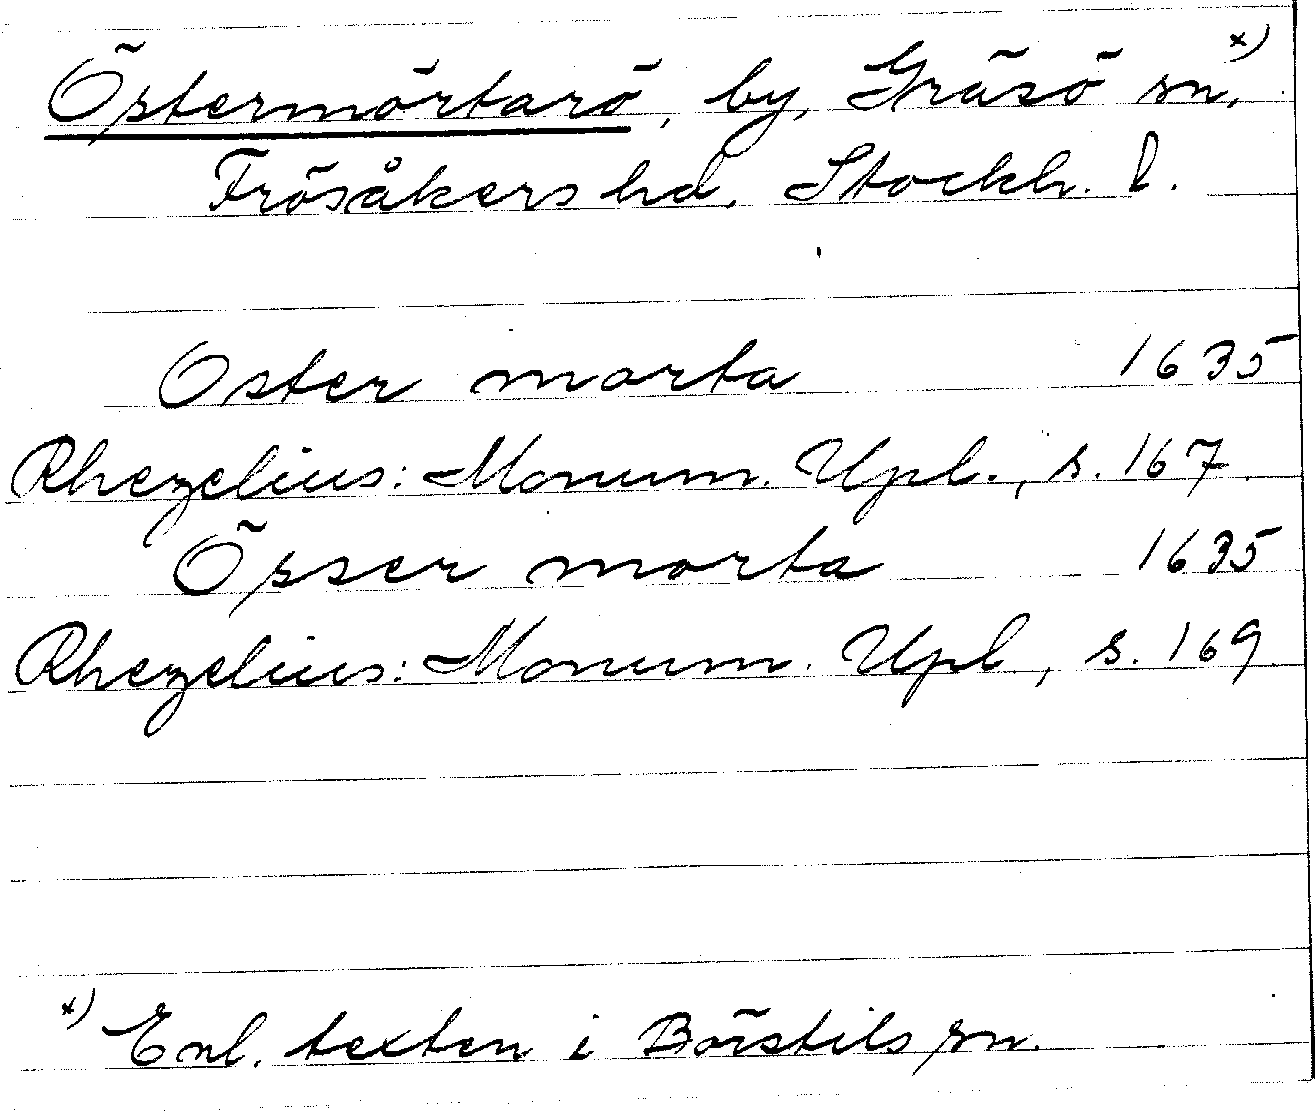 Östermörtarö, by, Gräsö sn. x)
Frösåkers hd, Stockh. l.
Oster morta 1635
Rhezelius: Monum. Upl., s. 167.
Össer morta 1635
Rhezelius: Monum. Upl, s. 169
x) Enl. texten i Börstils sn.